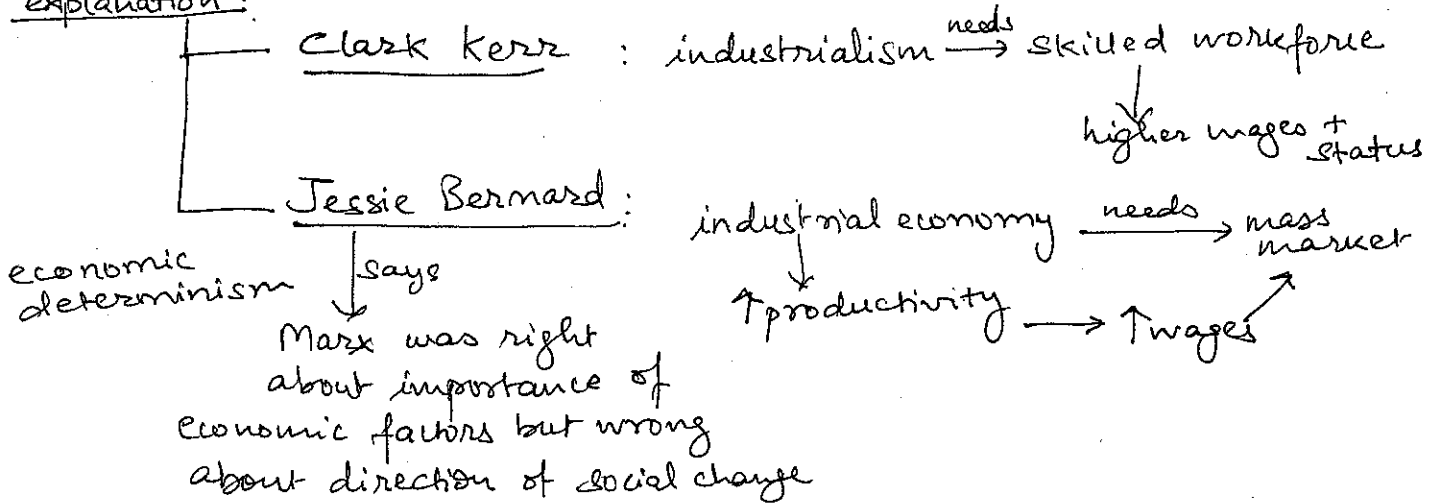 explanation:
Clark Kerr : industrialism needs → skilled workforce
↓
higher wages + status
Jessie Bernard : industrial economy needs → mass market
↓
↑ productivity → ↑ wages
economic determinism
↓ says
Marx was right
about importance of
economic factors but wrong
about direction of social change